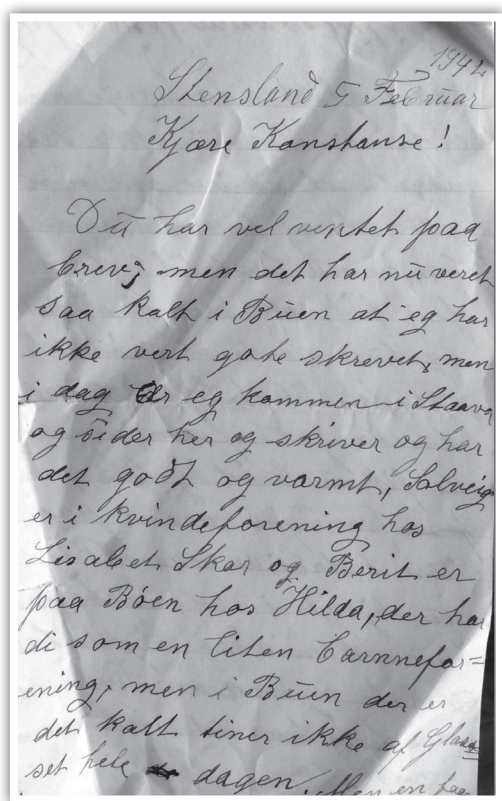 1942
Stensland 5 Februar
Kjære Konstanse!
Du har vel ventet paa
brev; men det har nu veret
saa kalt i Buen at eg har
ikke vert gote skrevet, men
i dag er eg kommen i Staava
og sider her og skriver og har
det godt og varmt, Solveig
er i kvindeforening hos
Lisabet Skar og Berit er
paa Bøen hos Hilda, der har
di som en liten barnnefor=
ening, men i Buen der er
det kalt tiner ikke af Glas
set hele dagen. Men en faa